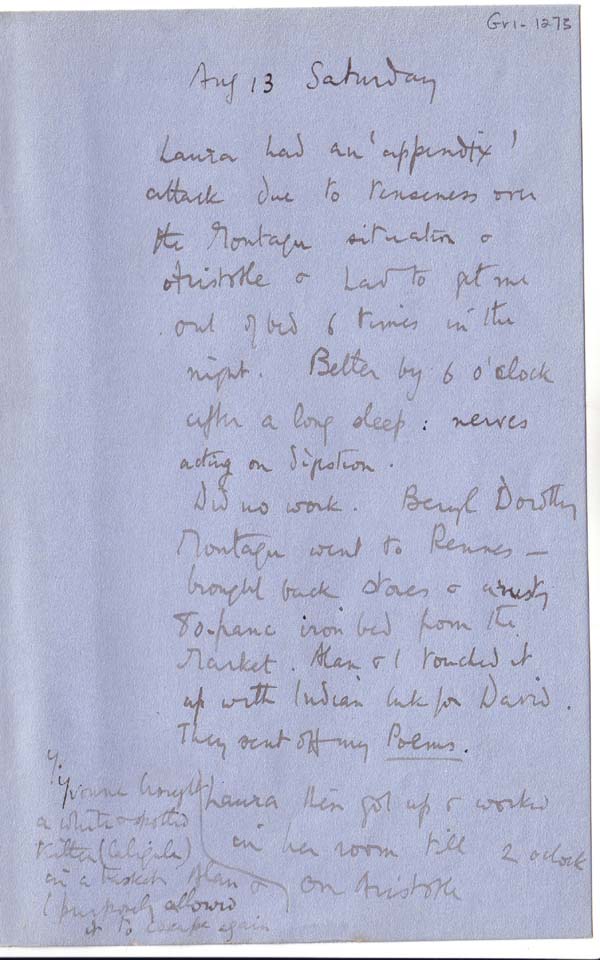 Gr1-1273
Aug 13 Saturday
Laura had an 'appendix'
attack due to tenseness over
the Montagu situation &
Aristotle & had to get me
out of bed 6 times in the
night. Better by 6 o'clock
after a long sleep: nerves
acting on digestion.
Did no work. Beryl Dorothy
Montagu went to Rennes —
brought back stores & a rusty
80-franc iron bed from the
Market. Alan & I touched it
up with Indian ink for David.
They sent off my Poems.
Laura then got up & worked
in her room till 2 oclock
on Aristotle
Yvonne brought
a white & spotted
kitten (Caligula)
in a basket. Alan &
I purposely allowed
it to escape again